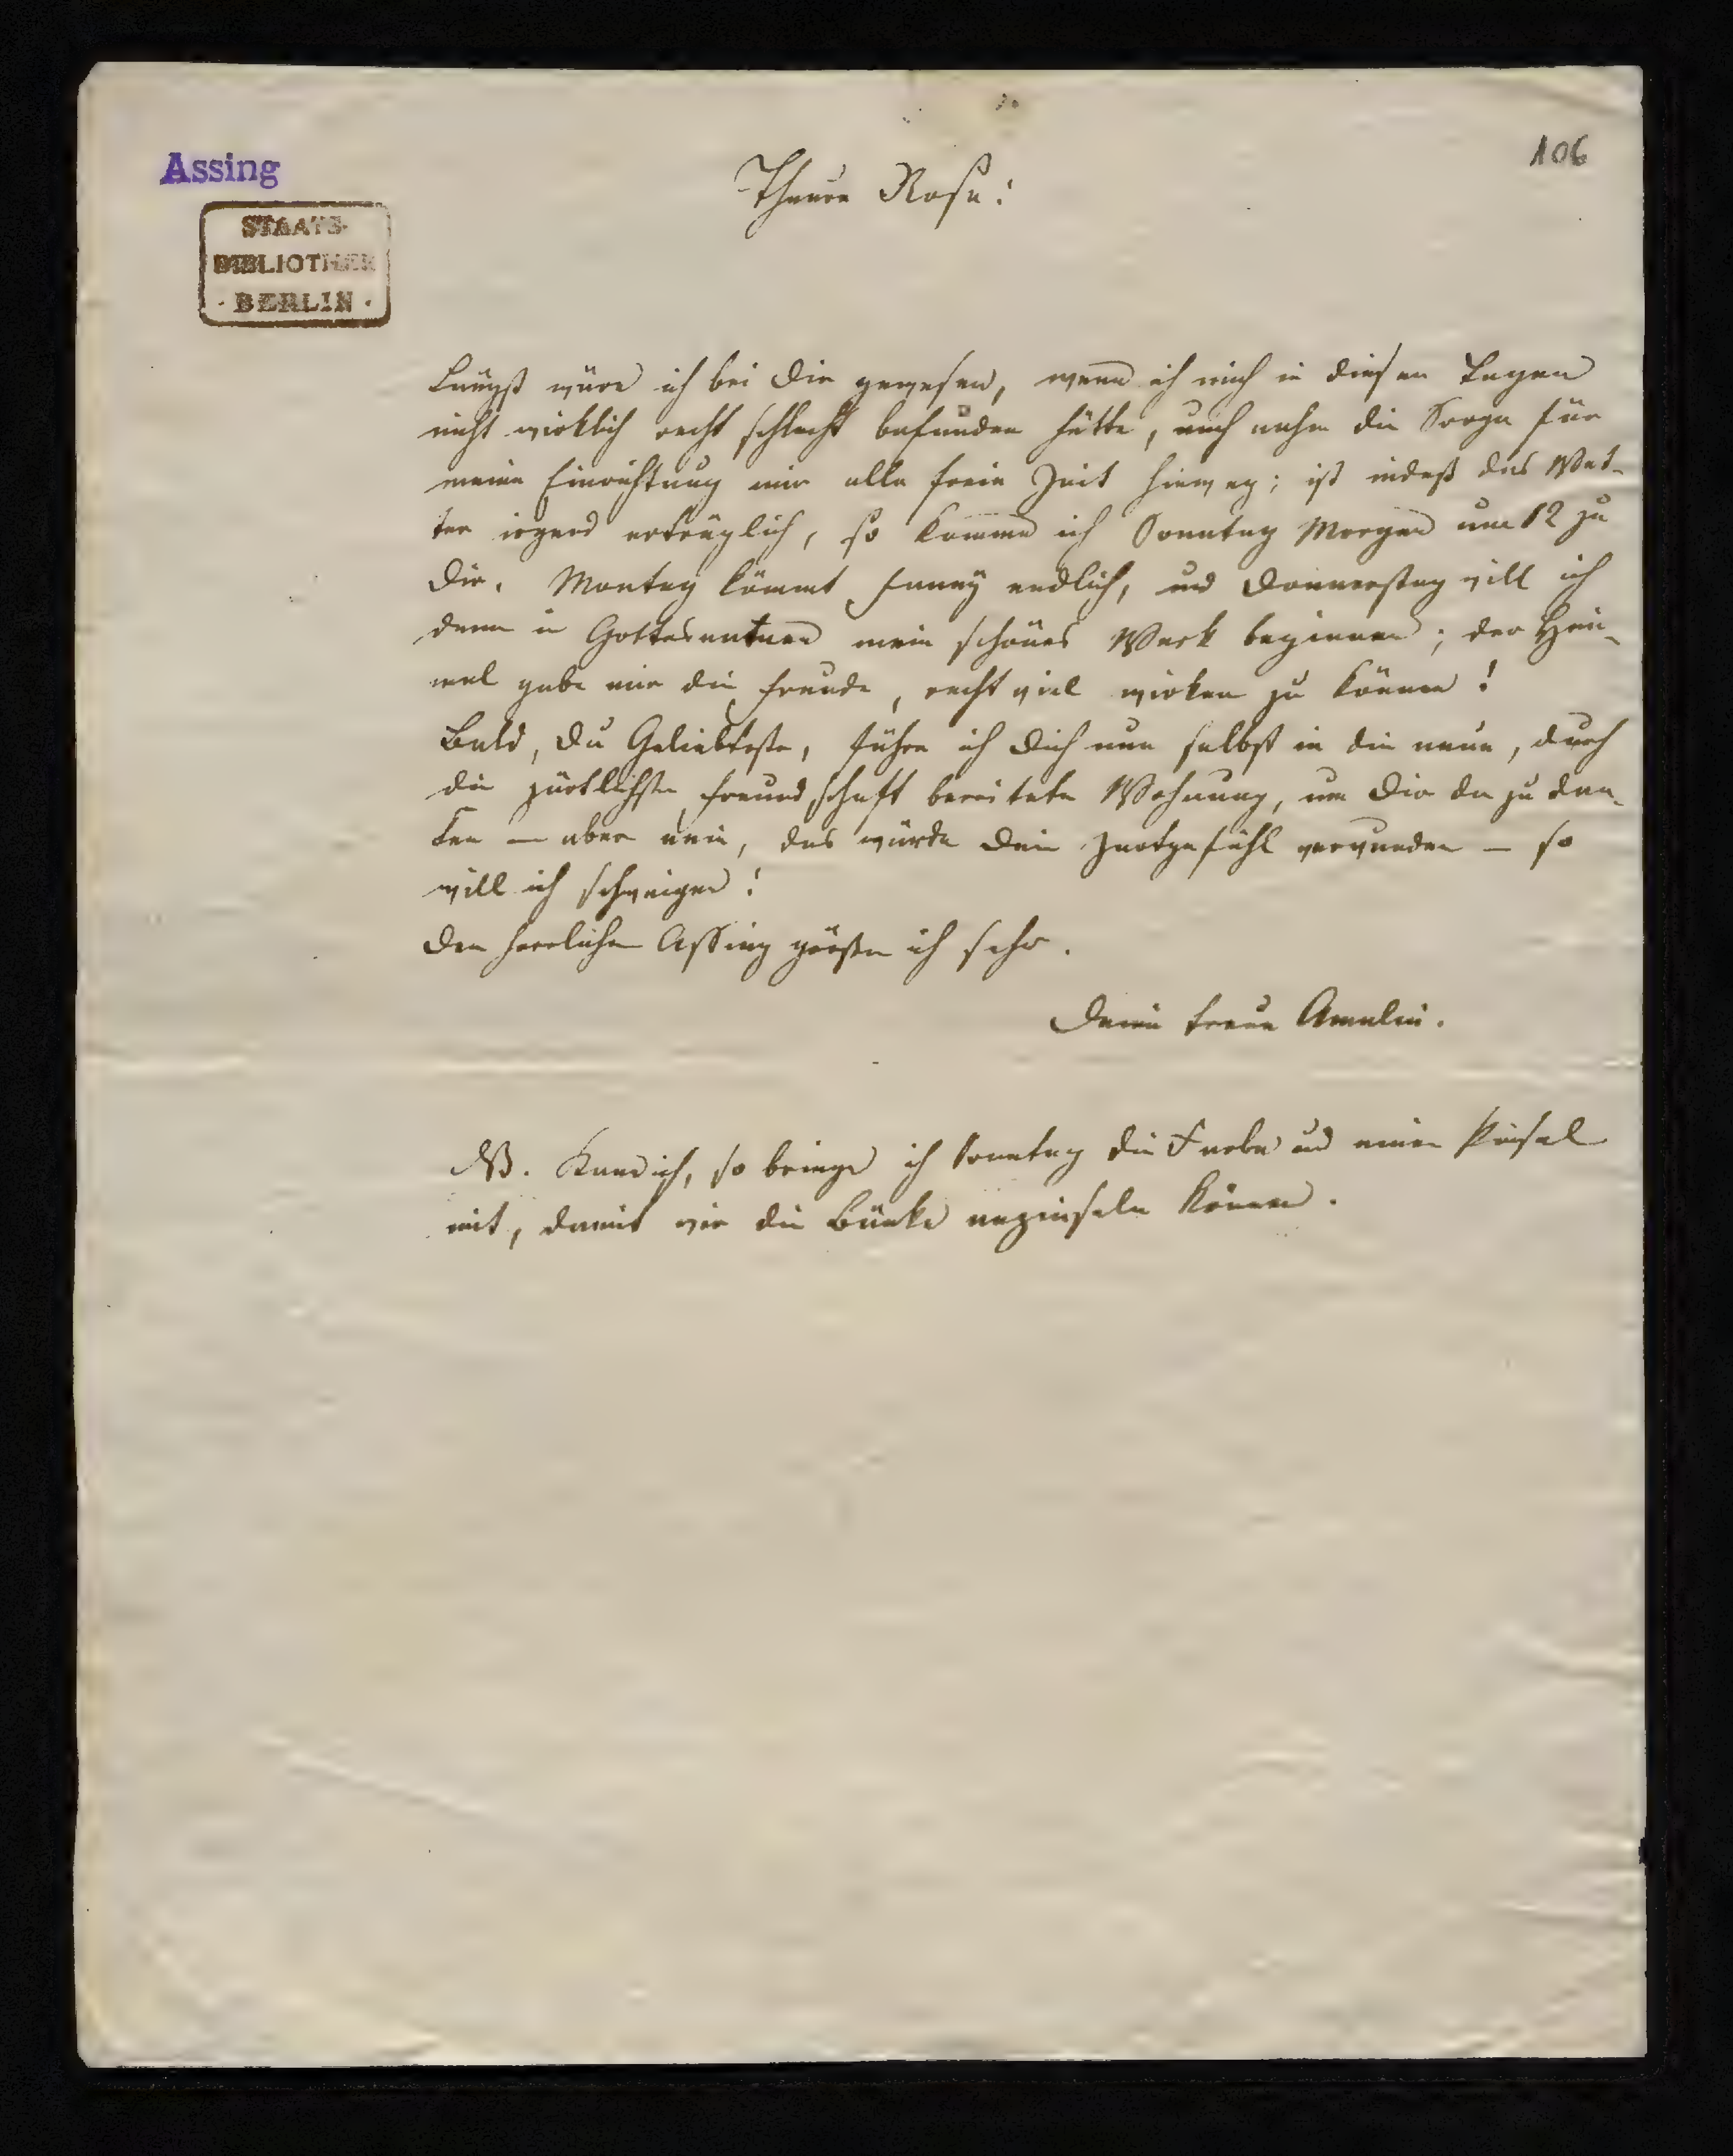 106
Assing
STAATS-
BIBLIOTHEK
· BERLIN ·
Theure Rosa!
Längst wäre ich bei Dir gewesen, wenn ich mich in diesen Tagen
nicht wirklich recht schlecht befunden hätte, auch nahm die Sorge für
meine Einrichtung mir alle freie Zeit hinweg; ist indeß das Wet-
ter irgend erträglich, so komme ich Sonntag Morgen um 12 zu
Dir. Montag kömmt Fanny endlich, und Donnerstag will ich
dann in Gottesnamen mein schönes Werk beginnen; der Him-
mel gebe mir die Freude, recht viel wirken zu können!
Bald, Du Geliebteste, führe ich Dich nun selbst in die neue, durch
die zärtlichste Freundschaft bereitete Wohnung, um Dir da zu dan-
ken – aber nein, das würde Dein Zartgefühl verwunden – so
will ich schweigen!
Den herrlichen Assing grüße ich sehr.
Deine treue Amalia.
NB. Kann ich, so bringe ich Sonntag die Farbe und einen Pinsel
mit, damit wir die Bänke anpinseln können.